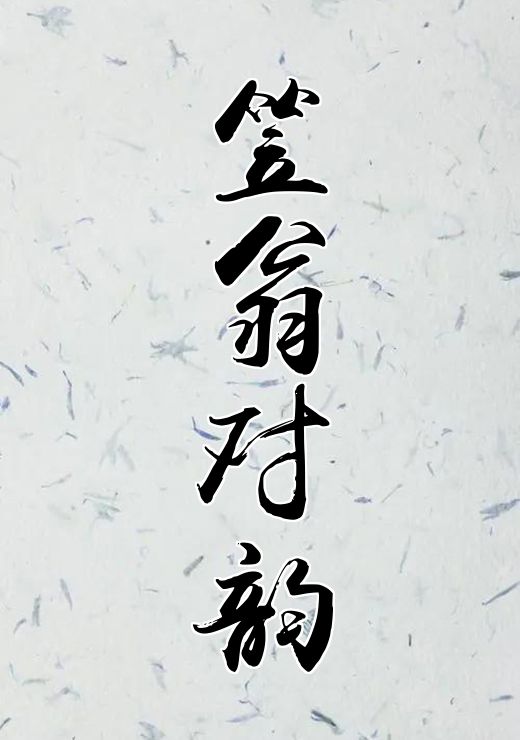 笠翁对韵